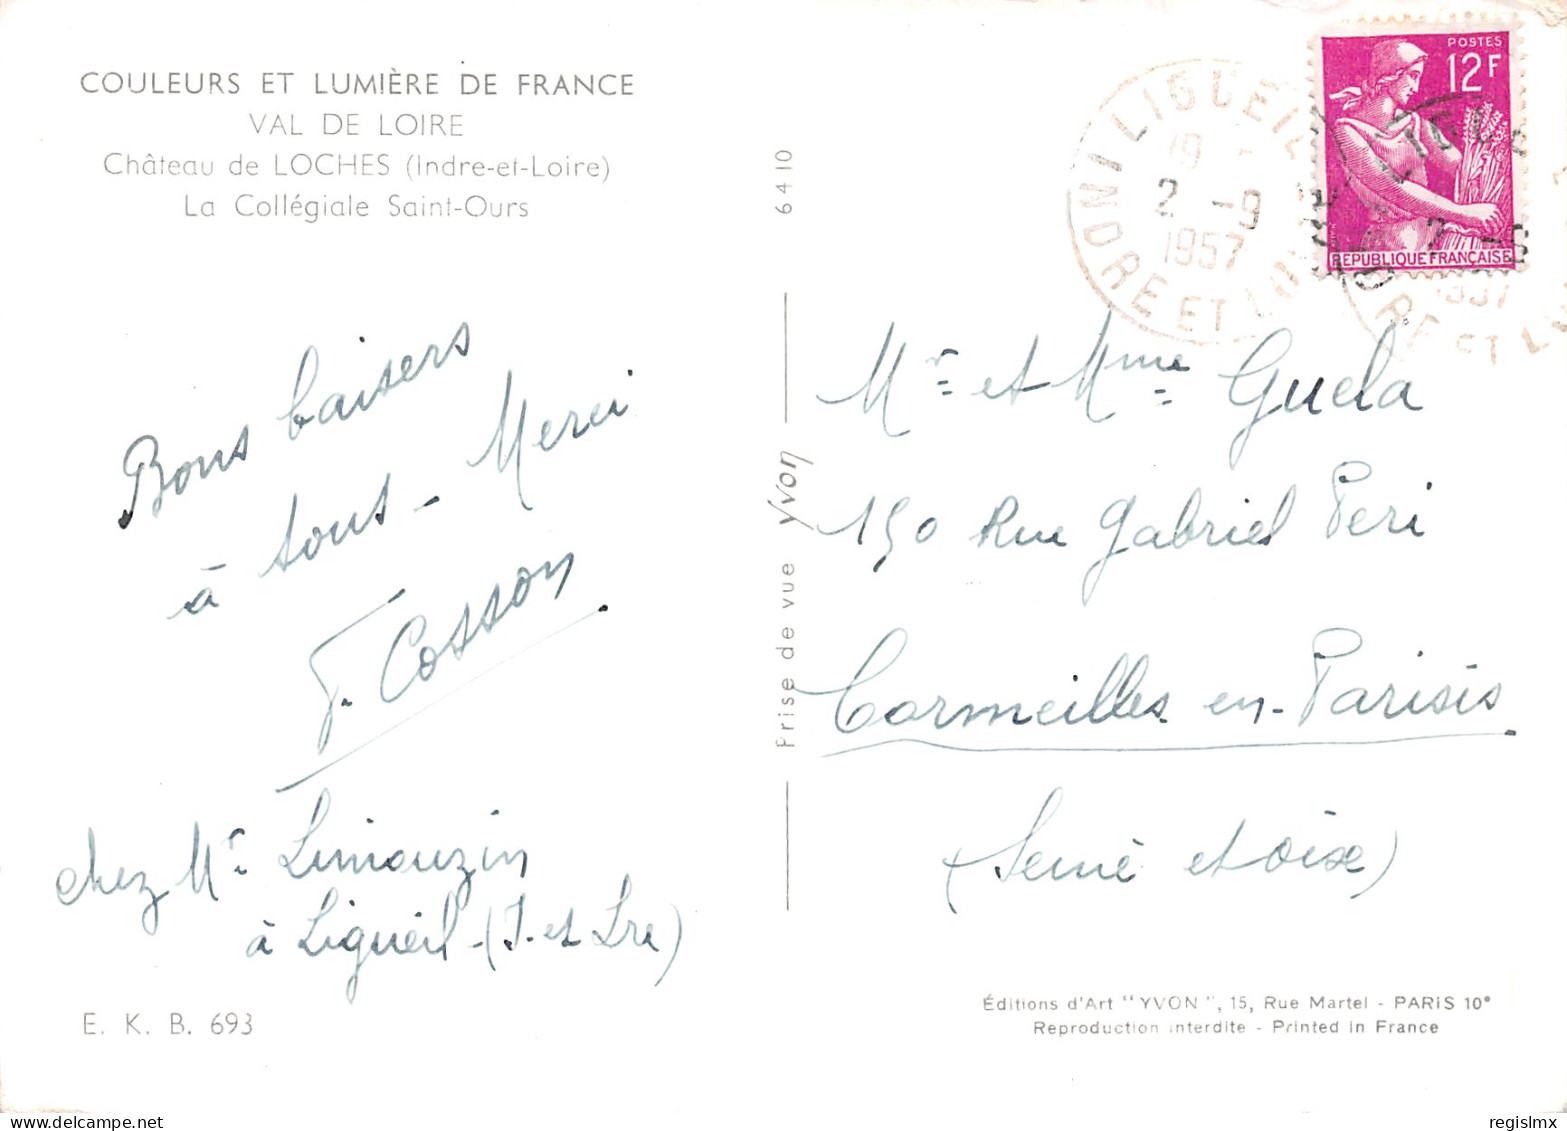 COULEURS ET LUMIÈRE DE FRANCE
VAL DE LOIRE
Château de LOCHES (Indre-et-Loire)
La Collégiale Saint-Ours
Bons baisers
à tous - Merci
Cosson
chez Mr. Limouzin
à Ligueil - (I. et Lre)
E. K. B. 693
6410
Prise de vue Yvon
POSTES
12F
REPUBLIQUE FRANÇAISE
LIGUEIL
19
2 -9
1957
INDRE ET LOIRE
Mr et Mme Guela
150 Rue Gabriel Peri
Cormeilles en-Parisis
(Seine et oise)
Éditions d'Art "YVON", 15, Rue Martel - PARIS 10e
Reproduction interdite - Printed in France
regislmx